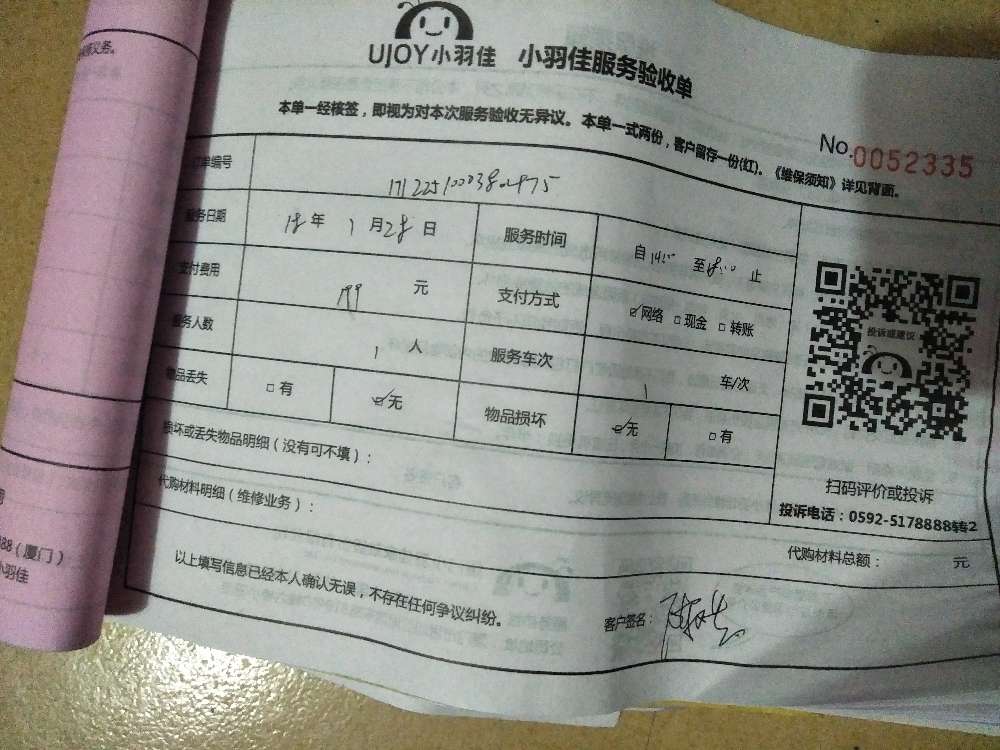 UJOY小羽佳 小羽佳服务验收单
本单一经核签，即视为对本次服务验收无异议。本单一式两份，客户留存一份(红)。《维保须知》详见背面。
No.0052335
订单编号
服务日期 18 年 1 月 28 日 服务时间 自 14:00 至 18:00 止
支付费用 199 元 支付方式 ☑网络 □现金 □转账
服务人数 1 人 服务车次 1 车/次
物品丢失 □有 ☑无 物品损坏 ☑无 □有
损坏或丢失物品明细（没有可不填）：
代购材料明细（维修业务）：
投诉或建议
扫码评价或投诉
投诉电话：0592-5178888转2
代购材料总额： 元
以上填写信息已经本人确认无误，不存在任何争议纠纷。
客户签名：
务。
88（厦门）
小羽佳